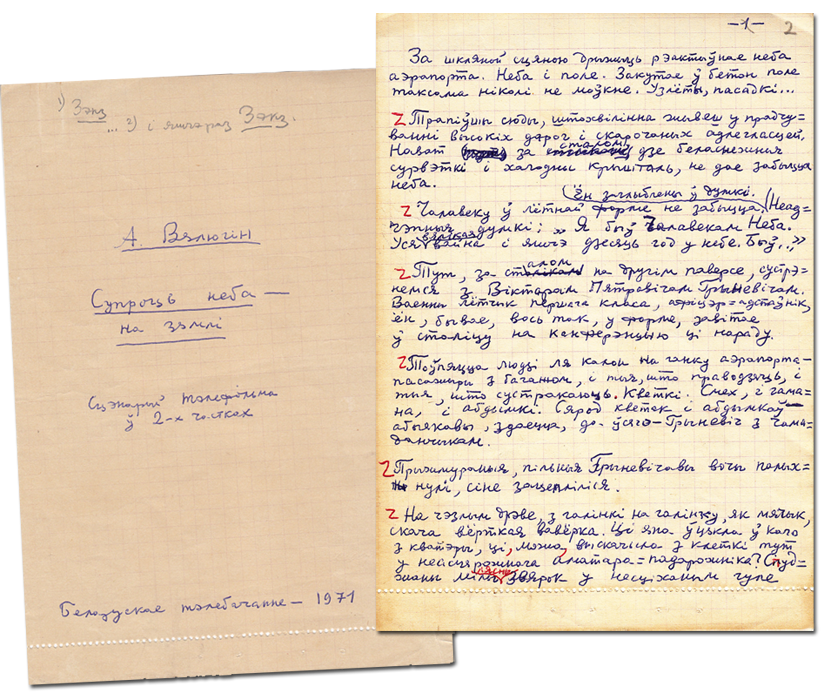 1) Экз
... 2) і яшчэ раз Экз.
А. Вялюгін
Супроць неба —
на зямлі
Сцэнарый тэлефільма
ў 2-х частках
Беларускае тэлебачанне — 1971
—1— 2
За шкляной сцяною дрыжыць рэактыўнае неба
аэрапорта. Неба і поле. Закутае ў бетон поле
таксама ніколі не моўкне. Узлёты, пасадкі...
Трапіўшы сюды, штохвілінна жывеш у прадчу=
ванні высокіх дарог і скарочаных адлегласцей.
Нават за сталом, дзе беласнежныя
сурвэткі і халодны крышталь, не дае забыцца
неба.
Ён заглыблены ў думкі.
Чалавеку ў лётнай форме не забыцца. (Неад=
чэпныя думкі; „Я быў Чалавекам Неба.
Уся вайна і яшчэ дзесяць год у небе. Быў..."
Тут, за сталом на другім паверсе, сустрэ=
немся з Віктарам Пятровічам Грыневічам.
Ваенны лётчык першага класа, афіцэр=адстаўнік,
ён, бывае, вось так, у форме, завітае
ў сталіцу на канферэнцыю ці нараду.
Тоўпяцца людзі ля калон на ганку аэрапорта—
пасажыры з багажом, і тыя, што праводзяць, і
тыя, што сустракаюць. Кветкі. Смех, і гама=
на, і абдымкі. Сярод кветак і абдымкаў—
абыякавы, здаецца, да ўсяго—Грыневіч з чама=
данчыкам.
Прыжмураныя, пільныя Грыневічавы вочы палых=
нулі, сіне зацепліліся.
На чэзлым дрэве, з галінкі на галінку, як мячык,
скача вёрткая вавёрка. Ці яна ўцякла ў каго
з кватэры, ці, можа, выскачыла з клеткі тут
у неасцярожнага аматара=падарожніка? Студ=
звярок у несціханым гуле